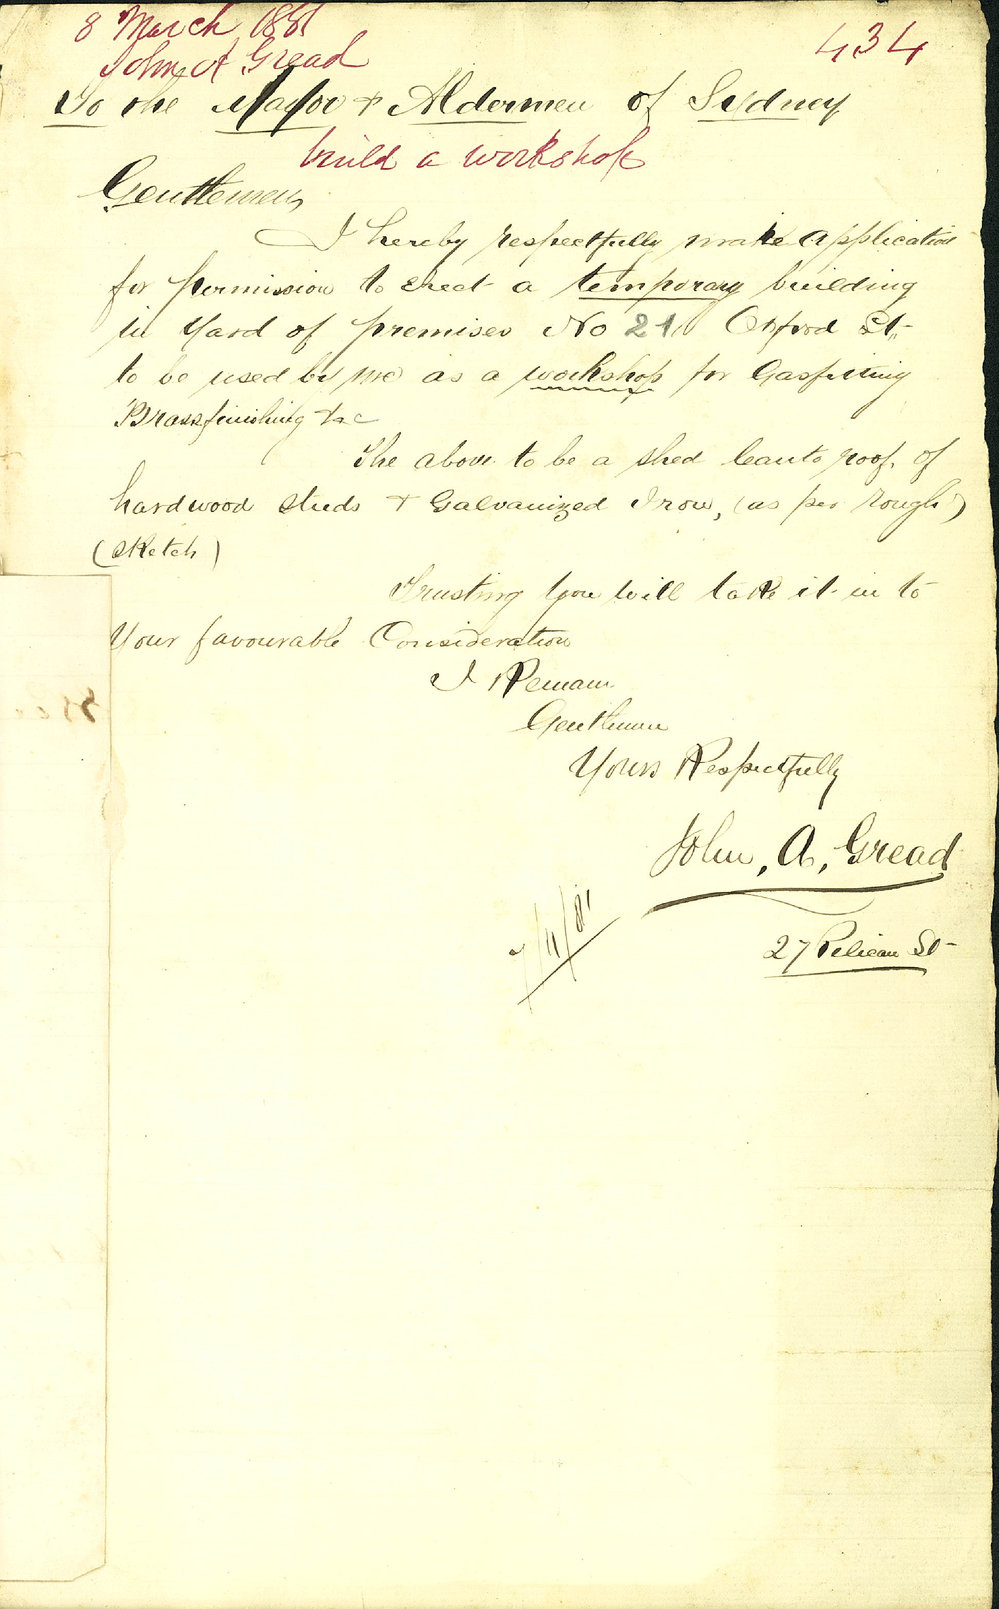 8 March 1881
434
John A Gread
To the Mayor & Aldermen of Sydney
build a workshop
Gentlemen,
I hereby respectfully make application
for permission to erect a temporary building
in Yard of premises No 21 Oxford St.
to be used by me as a workshop for Gasfitting
Brassfinishing &c
The above to be a shed leanto roof, of
hardwood studs & Galvanized Iron, (as per rough)
(sketch)
Trusting you will take it in to
Your favourable Consideration
I Remain
Gentlemen
Yours Respectfully
John, A, Gread
27 Pelican St